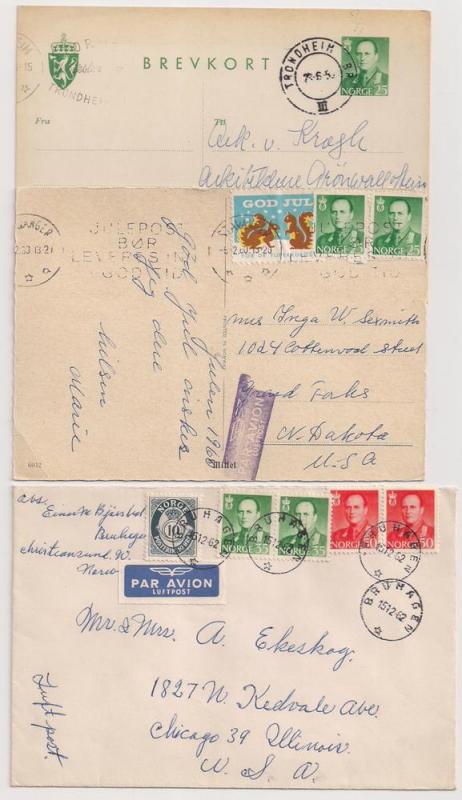 BREVKORT
TRONDHEIM
BR
III
NORGE 25
Fra
Til
Ark. v. Krogh
TRONDHEIM
JULEPOST
BØR
LEVERES I
GOD TID
GOD JUL
NORGE 25
NORGE 25
God jul ønskes
Julen 1960
Hilsen
Marie
Mrs Inga W. Sexmith
1024 Cottonwood Street
Grand Forks
N. Dakota
U.S.A
PAR AVION
6032
Mittet
abs.
Bruhagen
Christiansund. N.
Norw
NORGE 10
35
35
50
50
BRUHAGEN
15 12 62
BRUHAGEN
15 12 62
BRUHAGEN
15 12 62
BRUHAGEN
15 12 62
PAR AVION
LUFTPOST
Mr. & Mrs. A. Ekeskog.
1827 N. Kedvale Ave.
Chicago 39 Illinois.
U. S. A.
Luft post.